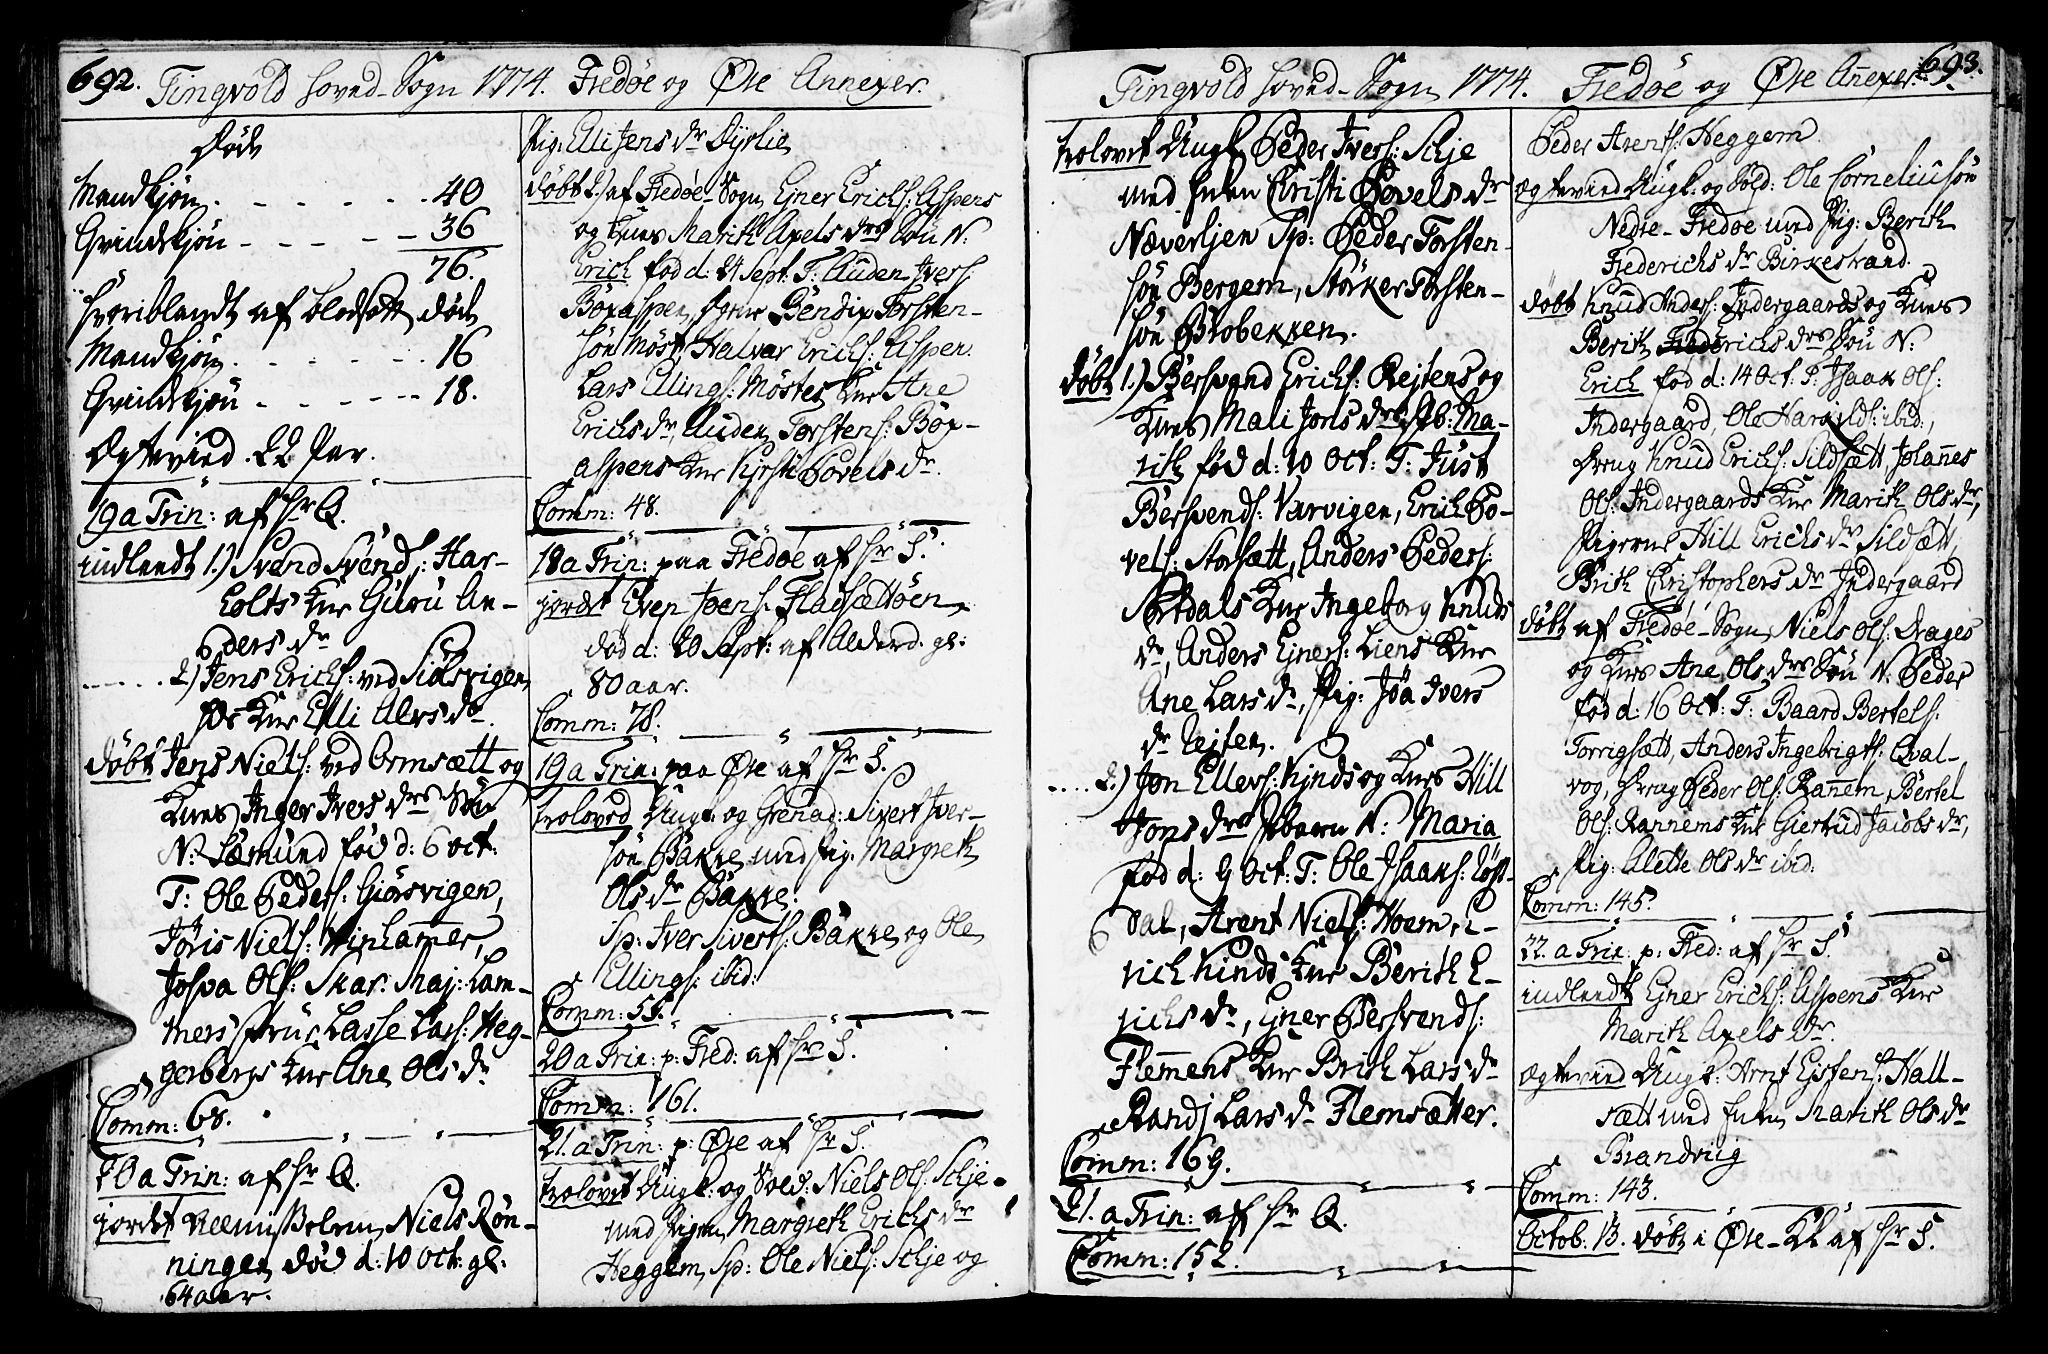 692. Tingvold Hoved-Sogn 1774. Fredøe og Øre Annexer.
Døde
Mandkjøn . . . . . . 40
Qvindekjøn - - - - - 36
76.
Hvoriblandt af Blodsott døde
Mandkjøn . . . . . . 16
Qvindekjøn . - - - - - 18.
Ægtevied 22 Par.
19 a Trin: af Hr Q.
indleedt 1.) Svend Svends: Har-
Eolts Kne Guru An-
ders dr
2) Jens Erichs: ved Silsvigen
Kne Elli Alvs dr.
døbt Jens Niels: ved Ormsætt og
Knes Inger Ivers drs Søn
N: Sæmund fød d: 6 oct:
T: Ole Peders: Giørsvigen,
Joris Niels: Winhamer,
Jospa Ols: Skar. Maj: Lam-
mers frue, Lasse Lars: Heg-
gerbergs Kne Ane Ols dr
Comm: 68.
20 a Trin: af Hr Q.
jordet Niels Røn-
ningen død d: 10 Oct: gl:
64 aar.
Pig: Elli Jens dr Dyrlie
døbt 2.) af Fredøe-Sogn Ejner Erichs: Aspens
og Knes Marith Axels drs Søn N:
Erich fød d: 21 Sept: T: Auden Ivers:
Böxaspen, Drene Bendix Torsten-
søn Möst, Halvar Erichs: Aspen.
Lars Ellings: Möstes Kne Ane
Erichs dr, Auden Torstens: Böx-
aspens Kne Kirsti Povels dr.
Comm: 48.
18 a Trin: paa Fredøe af Hr S.
jordet Even Joens: Fladsættöen
død d: 20 Sept: af Alderd. gl:
80 aar.
Comm: 78.
19 a Trin: paa Øre af Hr S.
troloved Ungk: og Grenad: Sivert Iver-
søn Bakke med Pig: Margreth
Ols dr Bakke.
Sp: Iver Siverts: Bakke og Ole
Ellings: ibid:
Comm: 55.
20 a Trin: p: Fred: af Hr S.
Comm: 161.
21. a Trin: p: Øre af Hr S.
trolovet Ungk: og Sold: Niels Ols: Schje-
med Pigen Margreth Erichs dr
Heggem, Sp: Ole Niels: Schje og
693.
Tingvold Hoved-Sogn 1774. Fredøe og Øre Anexer.
trolovet Ungk Peder Ivers: Schje
med Enken Christi Povels dr
Næverljen Sp: Peder Torsten-
søn Bergem, Störker Torsten-
søn Brobekken.
døbt 1.) Bersvend Erichs: Rejtens og
Knes Mali Jons drs Pb: Ma-
rith fød d: 10 Oct: T: Just
Bersvends: Varvigen, Erich Po-
vels: Storsætt, Anders Peders:
Sortdals Kne Ingeborg Knuds
dr, Anders Ejners: Liens Kne
Ane Lars dr, Pig: Jöa Ivers
dr Rejten.
2.) Jon Ellers: Hinds og Knes Hill
Jons drs Pbarn N: Maria
fød d: 9 Oct: T: Ole Isaaks: Röst-
dal, Arent Niels: Hoem, E-
rich Hinds Kne Berith E-
richs dr, Ejner Bersvends:
Flemmens Kne Brith Lars dr
Randj Lars dr Flemsætter.
Comm: 169.
21. a Trin: af Hr Q.
Comm: 152.
Peder Arents: Heggem
Ægtevied Ungk: og Sold: Ole Corneliusön
Nedre-Fredøe med Pig: Berith
Frederichs dr Birkestrand.
døbt Knud Anders: Indergaards og Knes
Berith Erichs drs Søn N:
Erich fød d: 14 Oct: T: Isaak Ols:
Indergaard, Ole Haralds: ibid:,
Dreng Knud Erichs: Sildsætt, Johannes
Ols: Indergaards Kne Marith Ols dr,
Pigerne Hill Erichs dr Sildsætt,
Brith Christophers dr Indergaard
døbt af Fredøe-Sogn Niels Ols: Rages
og Knes Ane Ols drs Søn N: Peder
fød d: 16 Oct: T: Baard Bertels:
Torrigsætt, Anders Ingebrigts: Qval-
vog, Dreng Peder Ols: Ranem, Bertel
Ols: Rannems Kne Giertrud Jacobs dr,
Pig: Alette Ols dr ibid:
Comm: 145.
22. a Trin: p: Fred: af Hr S.
indleedt Ejner Erichs: Aspens Kne
Marith Axels dr.
Ægtevied Ungk: Arnt Ejstens: Hall-
sætt med Enken Marith Ols dr
Brandviig
Comm: 143.
Octob: 13. døbt i Øre-K. af Hr S.